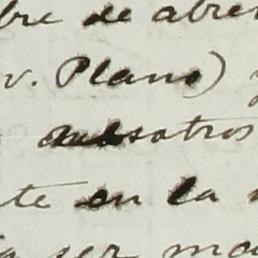 bre de abre
v. Plano)
nosotros
te en la
ser ma